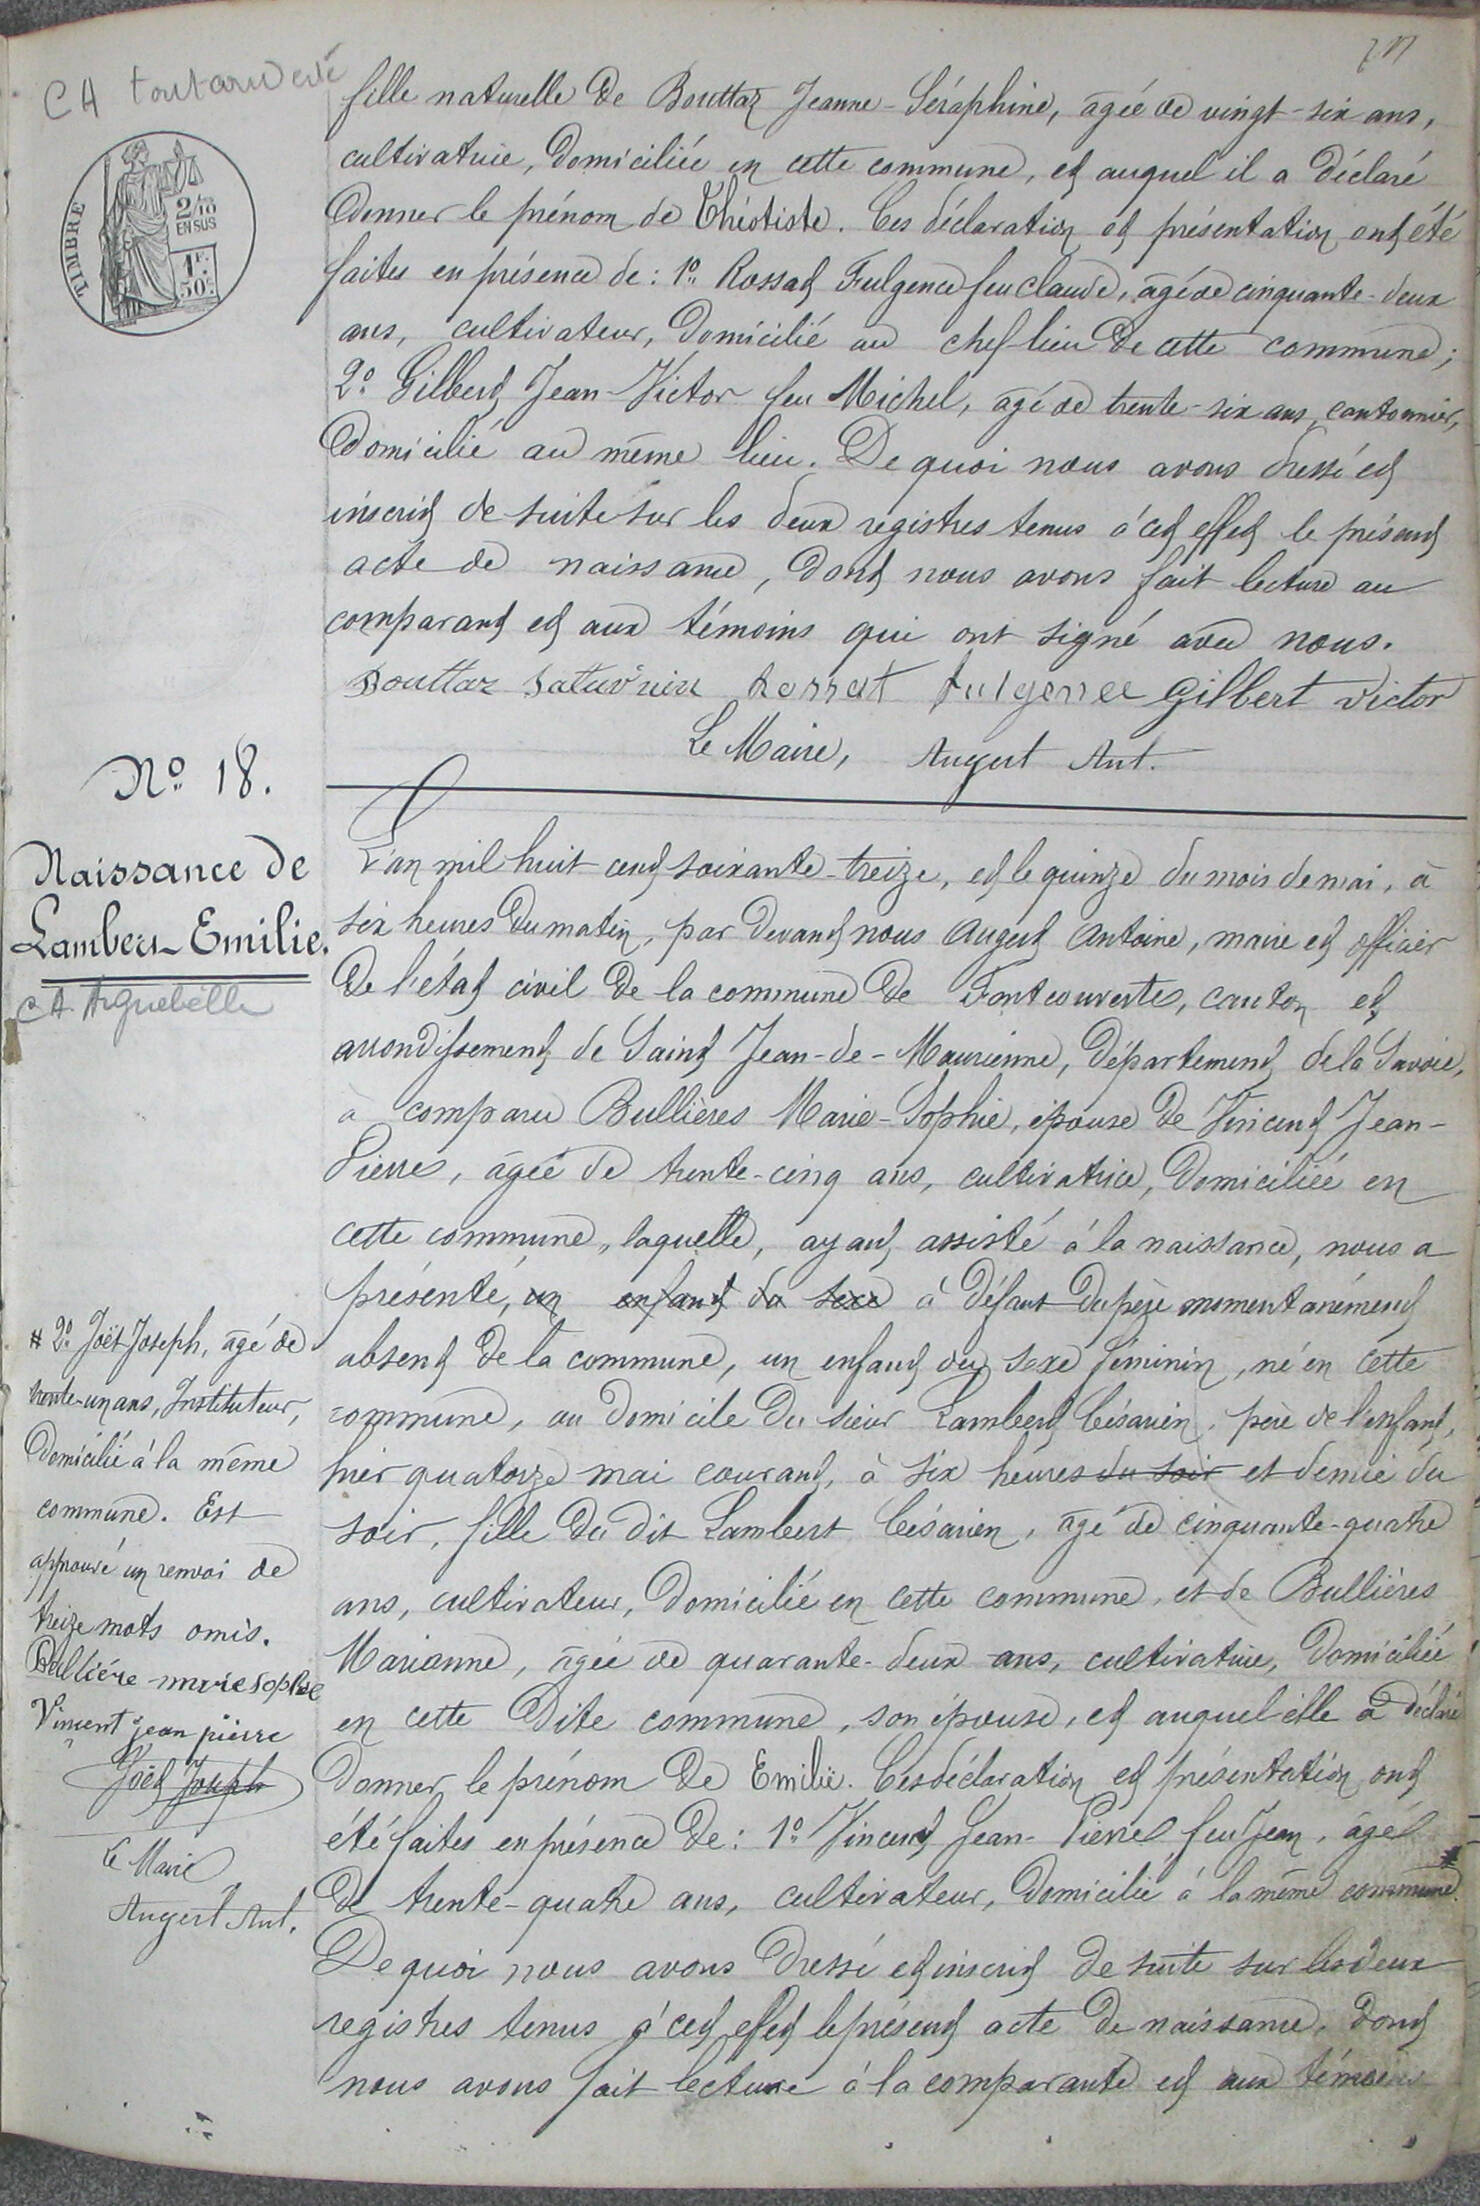 CA
fille naturelle de Bouttaz Jeanne-Séraphine, âgée de vingt-six ans,
cultivatrice, domiciliée en cette commune, et auquel il a déclaré
donner le prénom de Théotiste. Ces déclaration et présentation ont été
faites en présence de: 1º Rossat Fulgence feu Claude, âgé de cinquante-deux
ans, cultivateur, domicilié au chef-lieu de cette commune;
2º Gilbert Jean-Victor feu Michel, âgé de trente-six ans, cantonnier,
domicilié au même lieu. De quoi nous avons dressé et
inscrit de suite sur les deux registres tenus à cet effet le présent
acte de naissance, dont nous avons fait lecture au
comparant et aux témoins qui ont signé avec nous.
Bouttaz Saturnin Rossat Fulgence Gilbert Victor
Le Maire, Augert Ant.
TIMBRE
2/10
EN SUS
1F.
50c.
Nº 18.
Naissance de
Lambert Emilie.
CA Aiguebelle
L'an mil huit cent soixante-treize, et le quinze du mois de mai, à
six heures du matin, par devant nous Augert Antoine, maire et officier
de l'état civil de la commune de Fontcouverte, canton et
arrondissement de Saint Jean-de-Maurienne, département de la Savoie,
à comparu Bullières Marie-Sophie, épouse de Vincent Jean-
Pierre, âgée de trente-cinq ans, cultivatrice, domiciliée en
cette commune, laquelle, ayant assisté à la naissance, nous a
présenté, un enfant du sexe à défaut du père momentanément
absent de la commune, un enfant du sexe féminin, né en cette
commune, au domicile du sieur Lambert Césarien, père de l'enfant,
hier quatorze mai courant, à six heures du soir et demie du
soir, fille du dit Lambert Césarien, âgé de cinquante-quatre
ans, cultivateur, domicilié en cette commune, et de Bullières
Marianne, âgée de quarante-deux ans, cultivatrice, domiciliée
en cette dite commune, son épouse, et auquel elle a déclaré
donner le prénom de Emilie. Ces déclaration et présentation ont
été faites en présence de: 1º Vincent Jean-Pierre feu Jean, âgé
de trente-quatre ans, cultivateur, domicilié à la même commune. #
De quoi nous avons dressé et inscrit de suite sur les deux
registres tenus à cet effet le présent acte de naissance, dont
nous avons fait lecture à la comparante et aux témoins
# 2º Joët Joseph, âgé de
trente-un ans, Instituteur,
domicilié à la même
commune. Est
approuvé un renvoi de
treize mots omis.
Bullière marie sophie
Vincent jean pierre
Joët Joseph
Le Maire
Augert Ant.